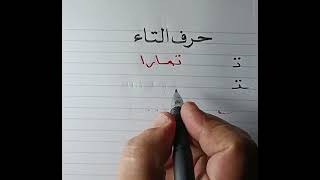 حرف التاء
تمارا تـ
ـتـ